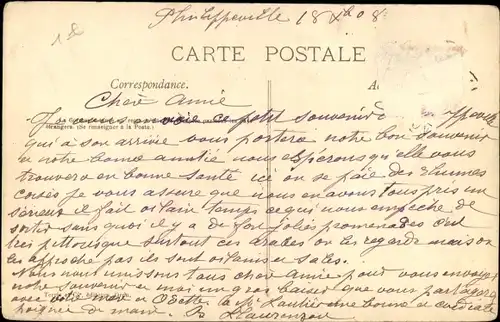 18
Philippeville 18 Xbre 08
CARTE POSTALE
Correspondance. A
Cher Amie
Je vous envoie ce petit souvenir de Ppeville
étrangers. (Se renseigner à la Poste.)
qui a son arrivée vous portera notre bon souvenir
et notre bonne amitie nous espérons qu'elle vous
trouvera en bonne santé ici on se paie des rhumes
corsés je vous assure que nous en avons tous pris un
serieux il fait vilain temps ce qui nous empeche de
sortir sans quoi il y a de fort jolies promenades c'est
tres pittoresque surtout ces arabes on les regarde mais on
les approche pas ils sont vilains et sales.
Nous nous unissons tous cher Amie pour vous envoyer
notre souvenir et moi un gros baiser que vous partagerez
avec votre mari et Odette la Ptte une bonne et cordiale
poignée de main.